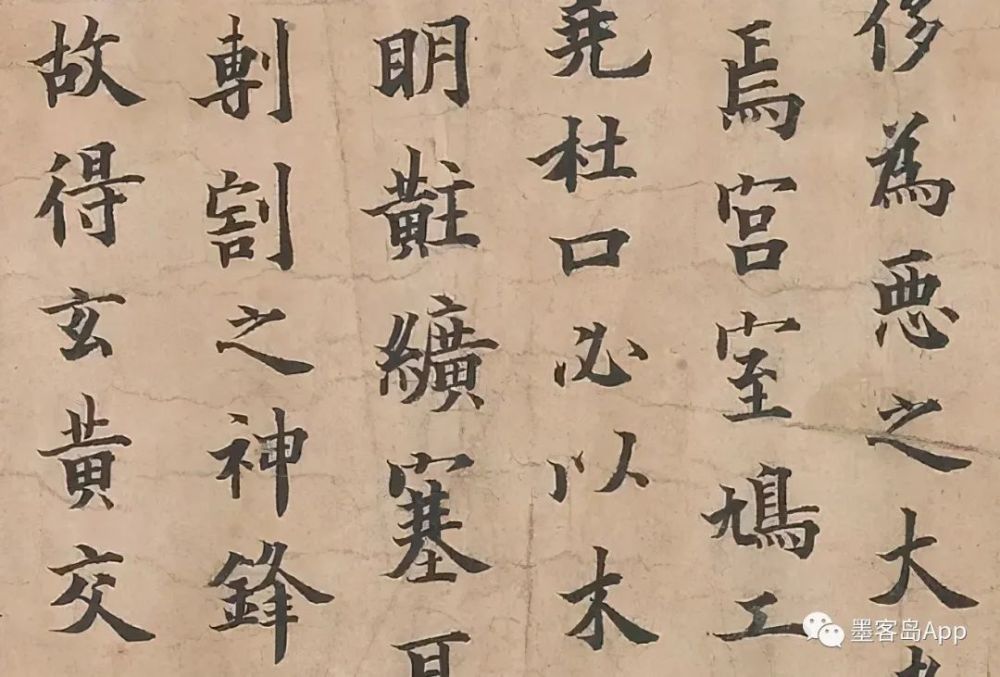 侈為惡之大
焉宮室鳩工
堯杜口必以木
明黈纊塞
剸割之神鋒
故得玄黃交
墨客岛App